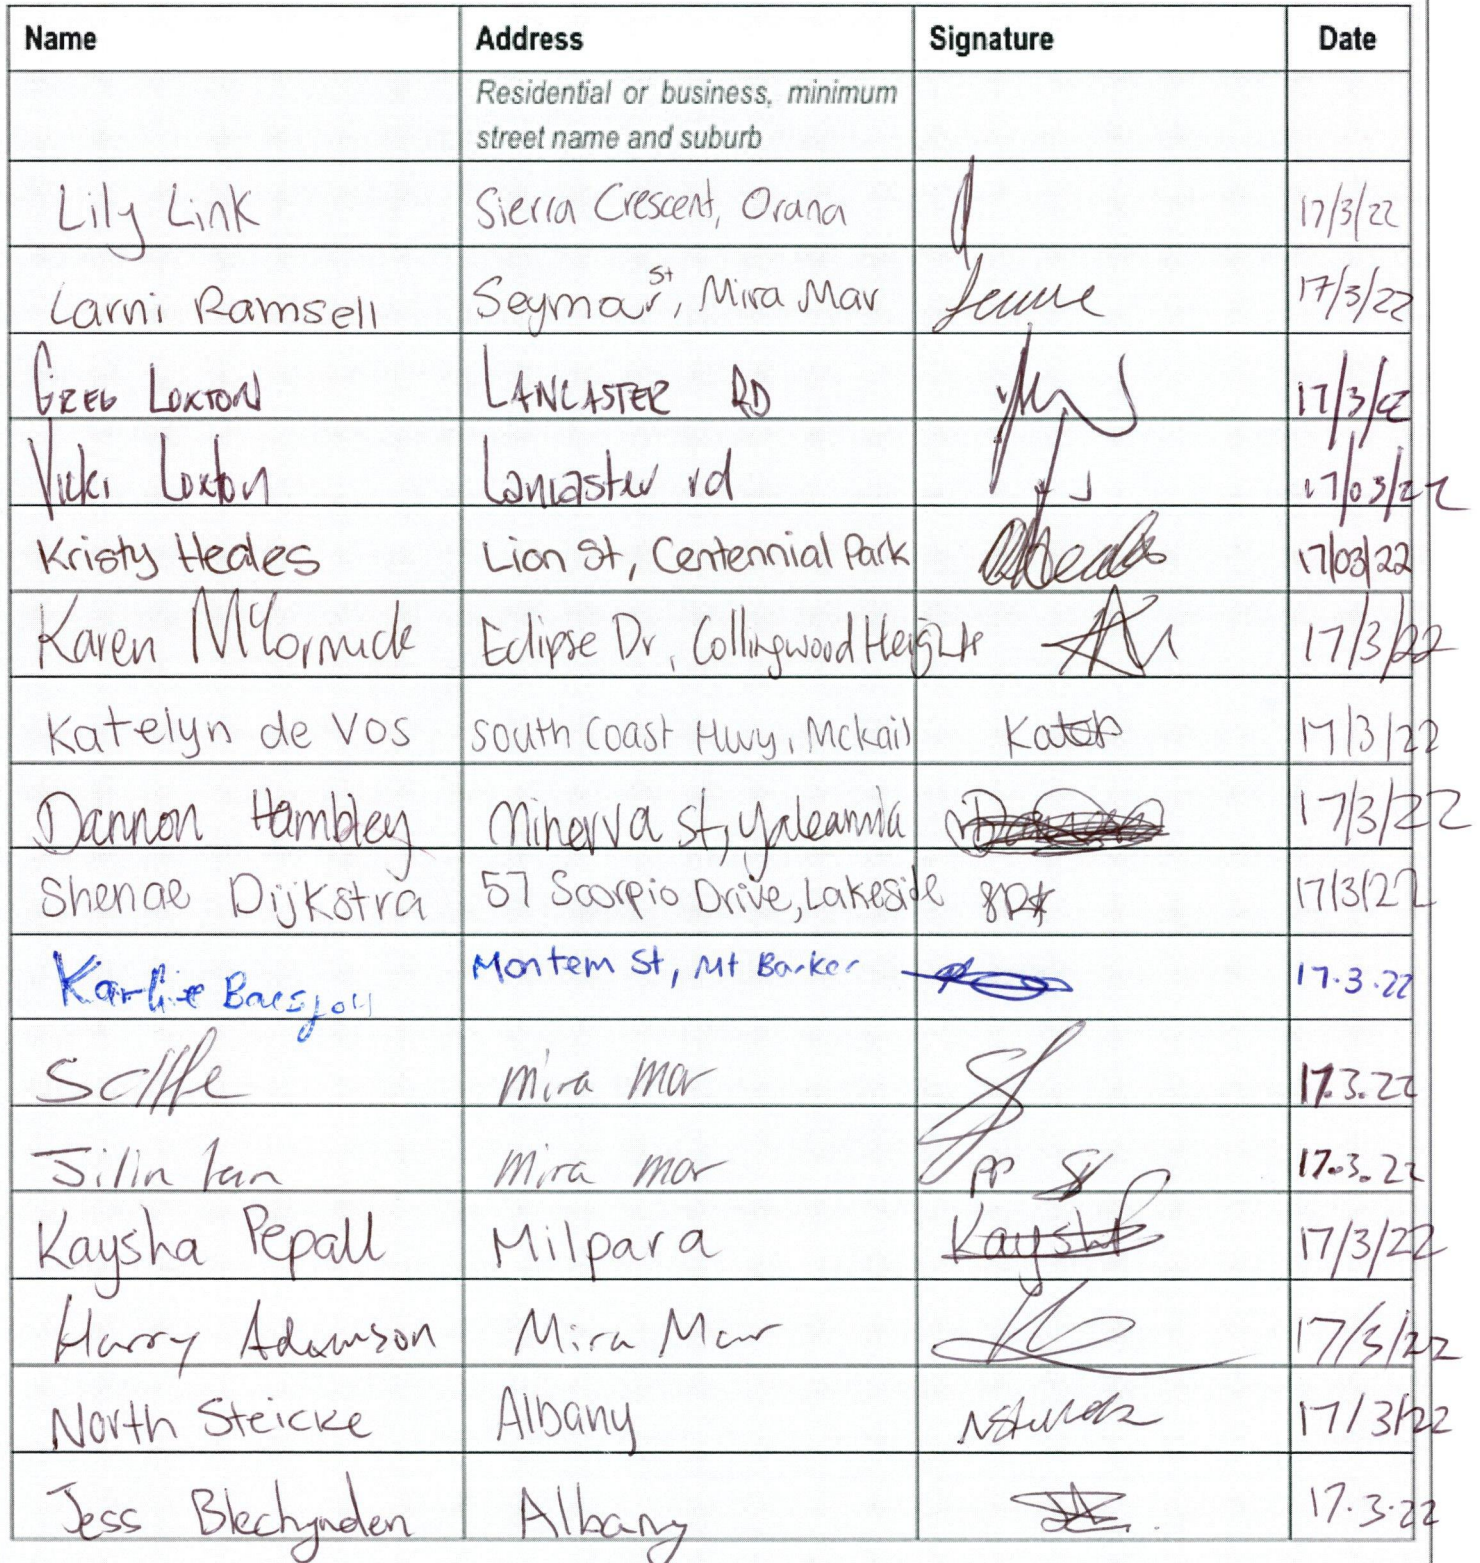 Name Address Signature Date
Residential or business, minimum
street name and suburb
Lily Link Sierra Crescent, Orana 17/3/22
Larni Ramsell Seymour St, Mira Mar 17/3/22
GREG LOXTON LANCASTER RD 17/3/22
Vicki Loxton Lancaster rd 17/03/22
Kristy Heales Lion St, Centennial Park 17/03/22
Karen McCormick Eclipse Dr, Collingwood Heights 17/3/22
Katelyn de Vos South Coast Hwy, Mckail 17/3/22
Dannon Hambley Minerva st, Yakamia 17/3/22
Shenae Dijkstra 57 Scorpio Drive, Lakeside 17/3/22
Karlie Montem St, Mt Barker 17.3.22
mira mar 17.3.22
Jilin mira mar pp 17.3.22
Kaysha Pepall Milpara Kaysha 17/3/22
Harry Adamson Mira Mar 17/3/22
North Steicke Albany 17/3/22
Jess Blechynden Albany 17.3.22